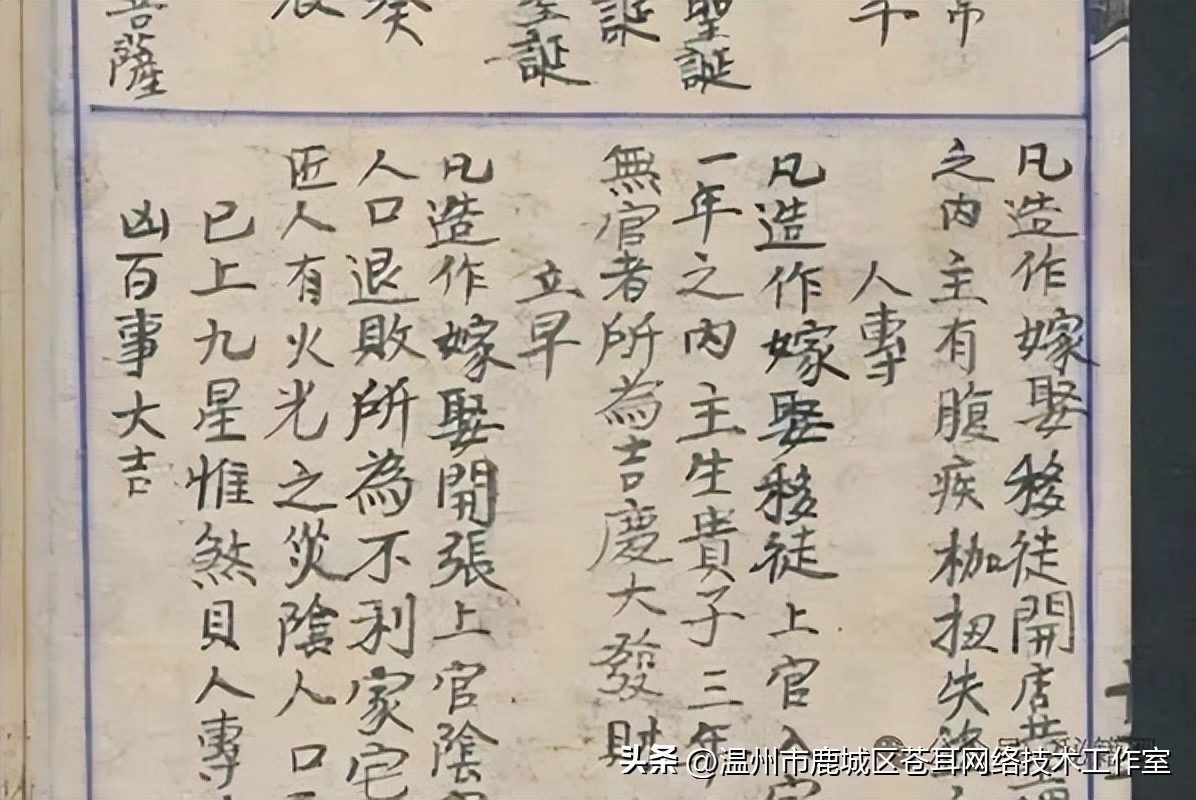 帝
聖誕
誕
聖誕
癸
辰
菩薩
凡造作嫁娶移徒開店
之内主有腹疾枷扭失
人專
凡造作嫁娶移徒上官入
一年之内主生貴子三年
無官者所為吉慶大發財
立早
凡造作嫁娶開張上官陰
人口退敗所為不利家宅
匠人有火光之災陰人口
已上九星惟煞貝人專
凶百事大吉
头条 @温州市鹿城区苍耳网络技术工作室